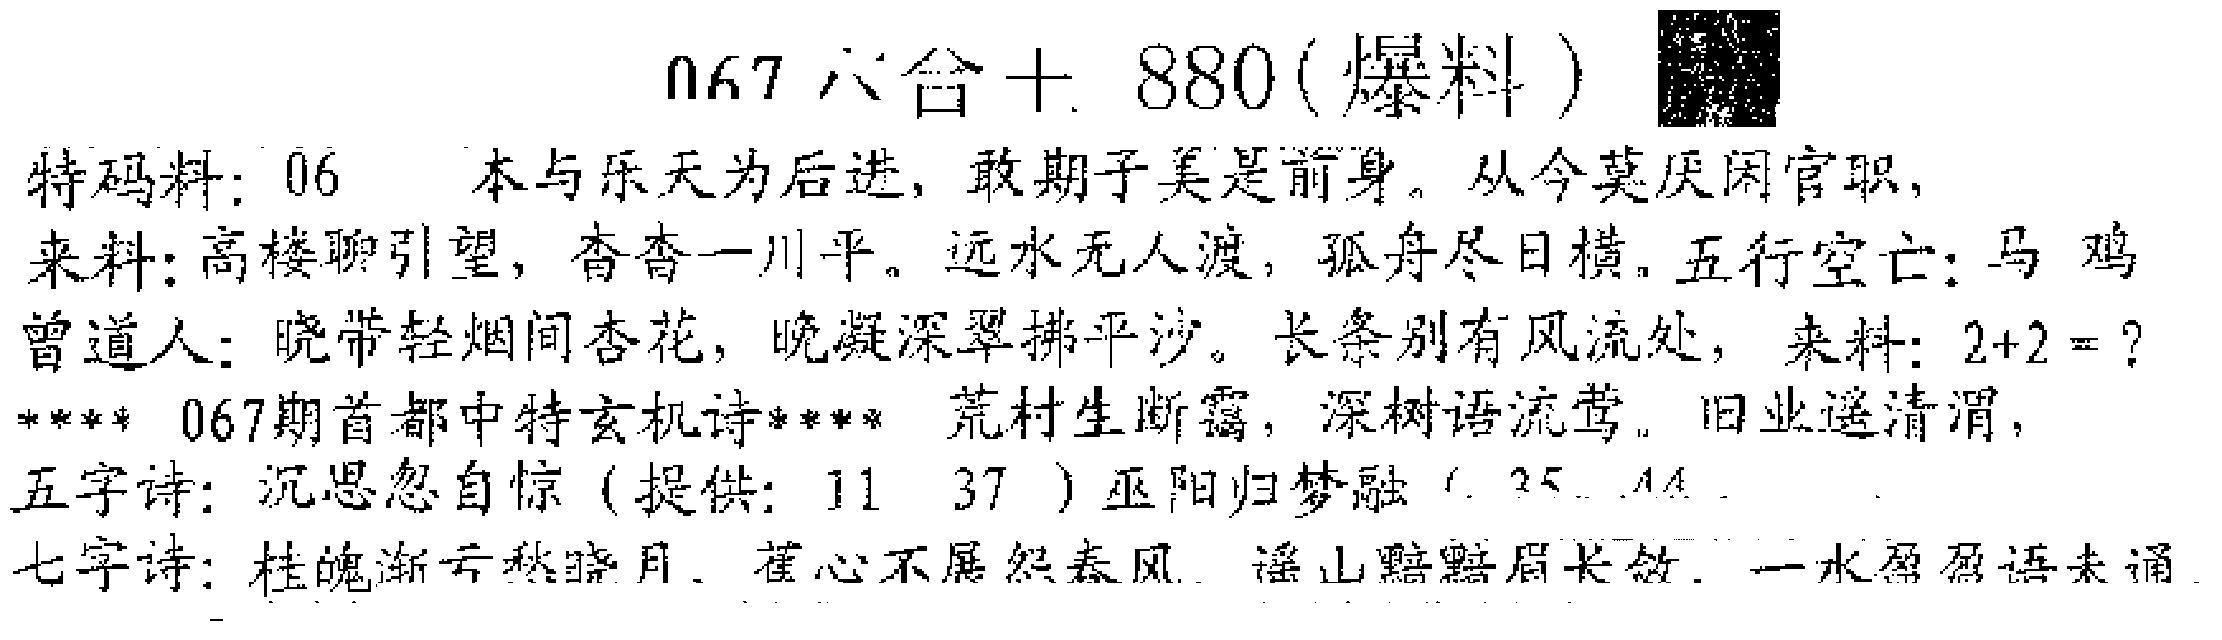 067 六合十 880(爆料)
特码料: 06 本与乐天为后进, 敢期子美是前身。从今莫厌闲官职,
来料:高楼聊引望, 杳杳一川平。远水无人渡, 孤舟尽日横。五行空亡: 马 鸡
曾道人: 晓带轻烟间杏花, 晚凝深翠拂平沙。长条别有风流处, 来料: 2+2=?
**** 067期首都中特玄机诗**** 荒村生断霭, 深树语流莺。旧业遥清渭,
五字诗: 沉思忽自惊 (提供: 11 37 ) 巫阳归梦融 ( 35 44
七字诗: 桂魄渐亏愁晓月, 蕉心不展怨春风. 遥山黯黯眉长敛. 一水盈盈语未通.